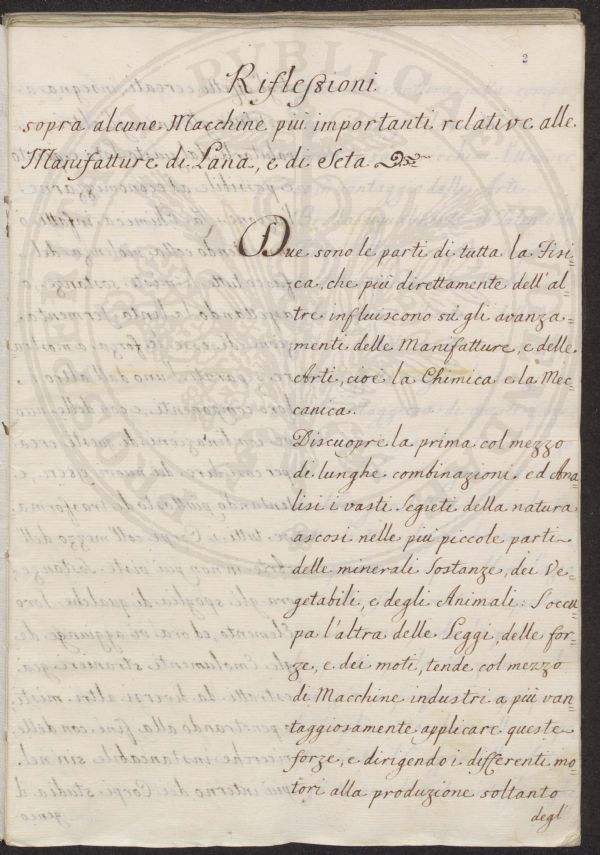 2
Riflessioni
sopra alcune Macchine più importanti relative alle
Manifatture di Lana, e di Seta
Due sono le parti di tutta la Fisi=
ca, che più direttamente dell'al=
tre influiscono sù gli avanza=
menti delle Manifatture, e delle
Arti, cioè la Chimica e la Mec=
canica.
Discuopre la prima col mezzo
di lunghe combinazioni ed Ana=
lisi i vasti segreti della natura
ascosi nelle più piccole parti
delle minerali sostanze, dei Ve=
getabili, e degli Animali: S'occu=
pa l'altra delle Leggi, delle for=
ze, e dei moti, tende col mezzo
di Macchine industri a più van=
taggiosamente applicare queste
forze, e dirigendo i differenti mo=
tori alla produzione soltanto
degl'